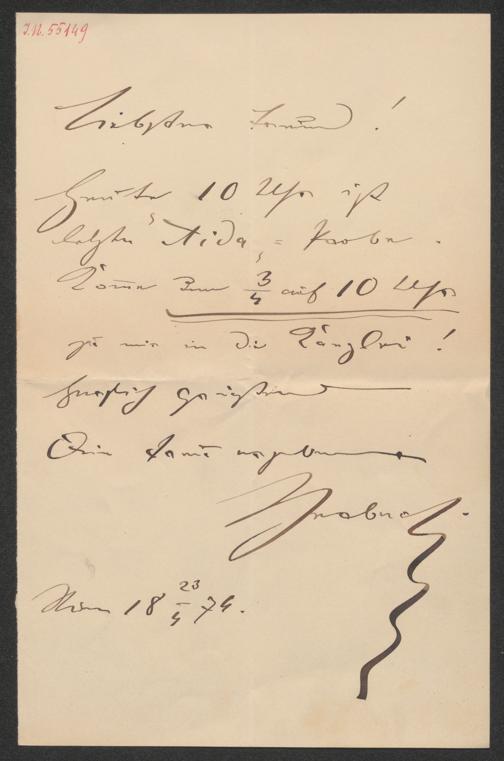 I.N. 55149
Liebster Freund!
Heute 10 Uhr ist
letzte "Aida"=Probe.
Kom̄e um 3/4 auf 10 Uhr
zu mir in die Kanzlei!
Herzlich grüßend
Dein ergebener
Herbeck
Wien 18 23/4 74.